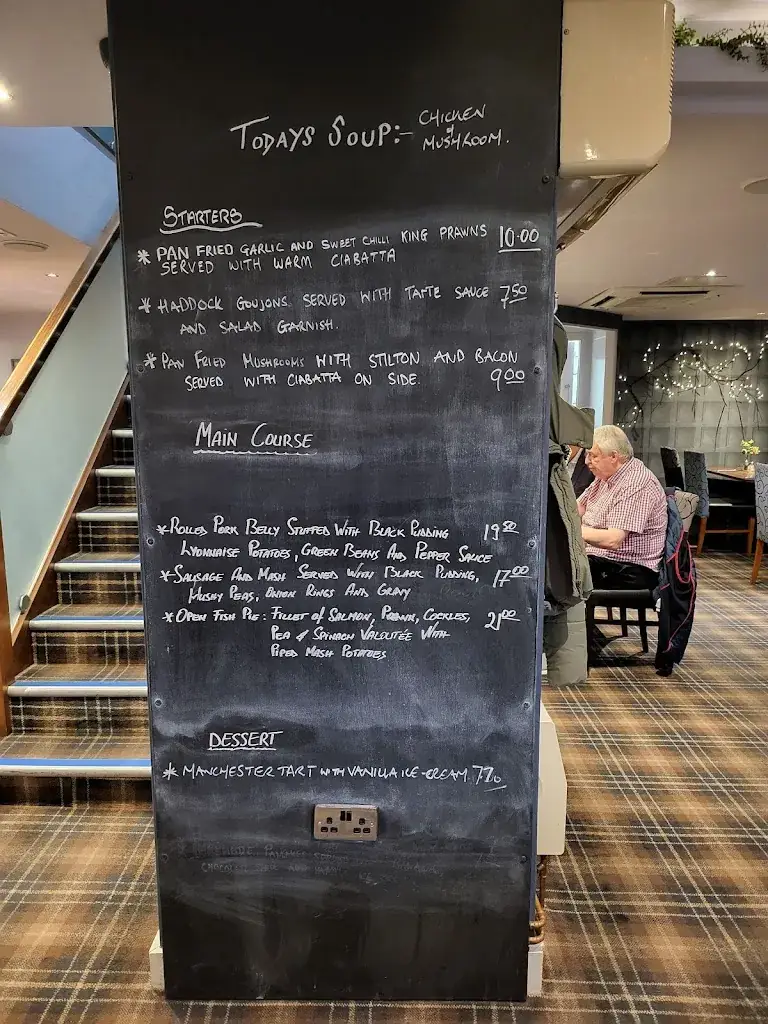 TODAYS SOUP:- CHICKEN & MUSHROOM.
STARTERS
* PAN FRIED GARLIC AND SWEET CHILLI KING PRAWNS 10.00
SERVED WITH WARM CIABATTA
* HADDOCK GOUJONS SERVED WITH TARTE SAUCE 7.50
AND SALAD GARNISH.
* PAN FRIED MUSHROOMS WITH STILTON AND BACON
SERVED WITH CIABATTA ON SIDE. 9.00
MAIN COURSE
* ROLLED PORK BELLY STUFFED WITH BLACK PUDDING 19.50
LYONNAISE POTATOES, GREEN BEANS AND PEPPER SAUCE
* SAUSAGE AND MASH SERVED WITH BLACK PUDDING, 17.00
MUSHY PEAS, ONION RINGS AND GRAVY
* OPEN FISH PIE: FILLET OF SALMON, PRAWN, COCKLES, 21.00
PEA & SPINACH VALOUTÉE WITH
PIPED MASH POTATOES
DESSERT
* MANCHESTER TART WITH VANILLA ICE-CREAM